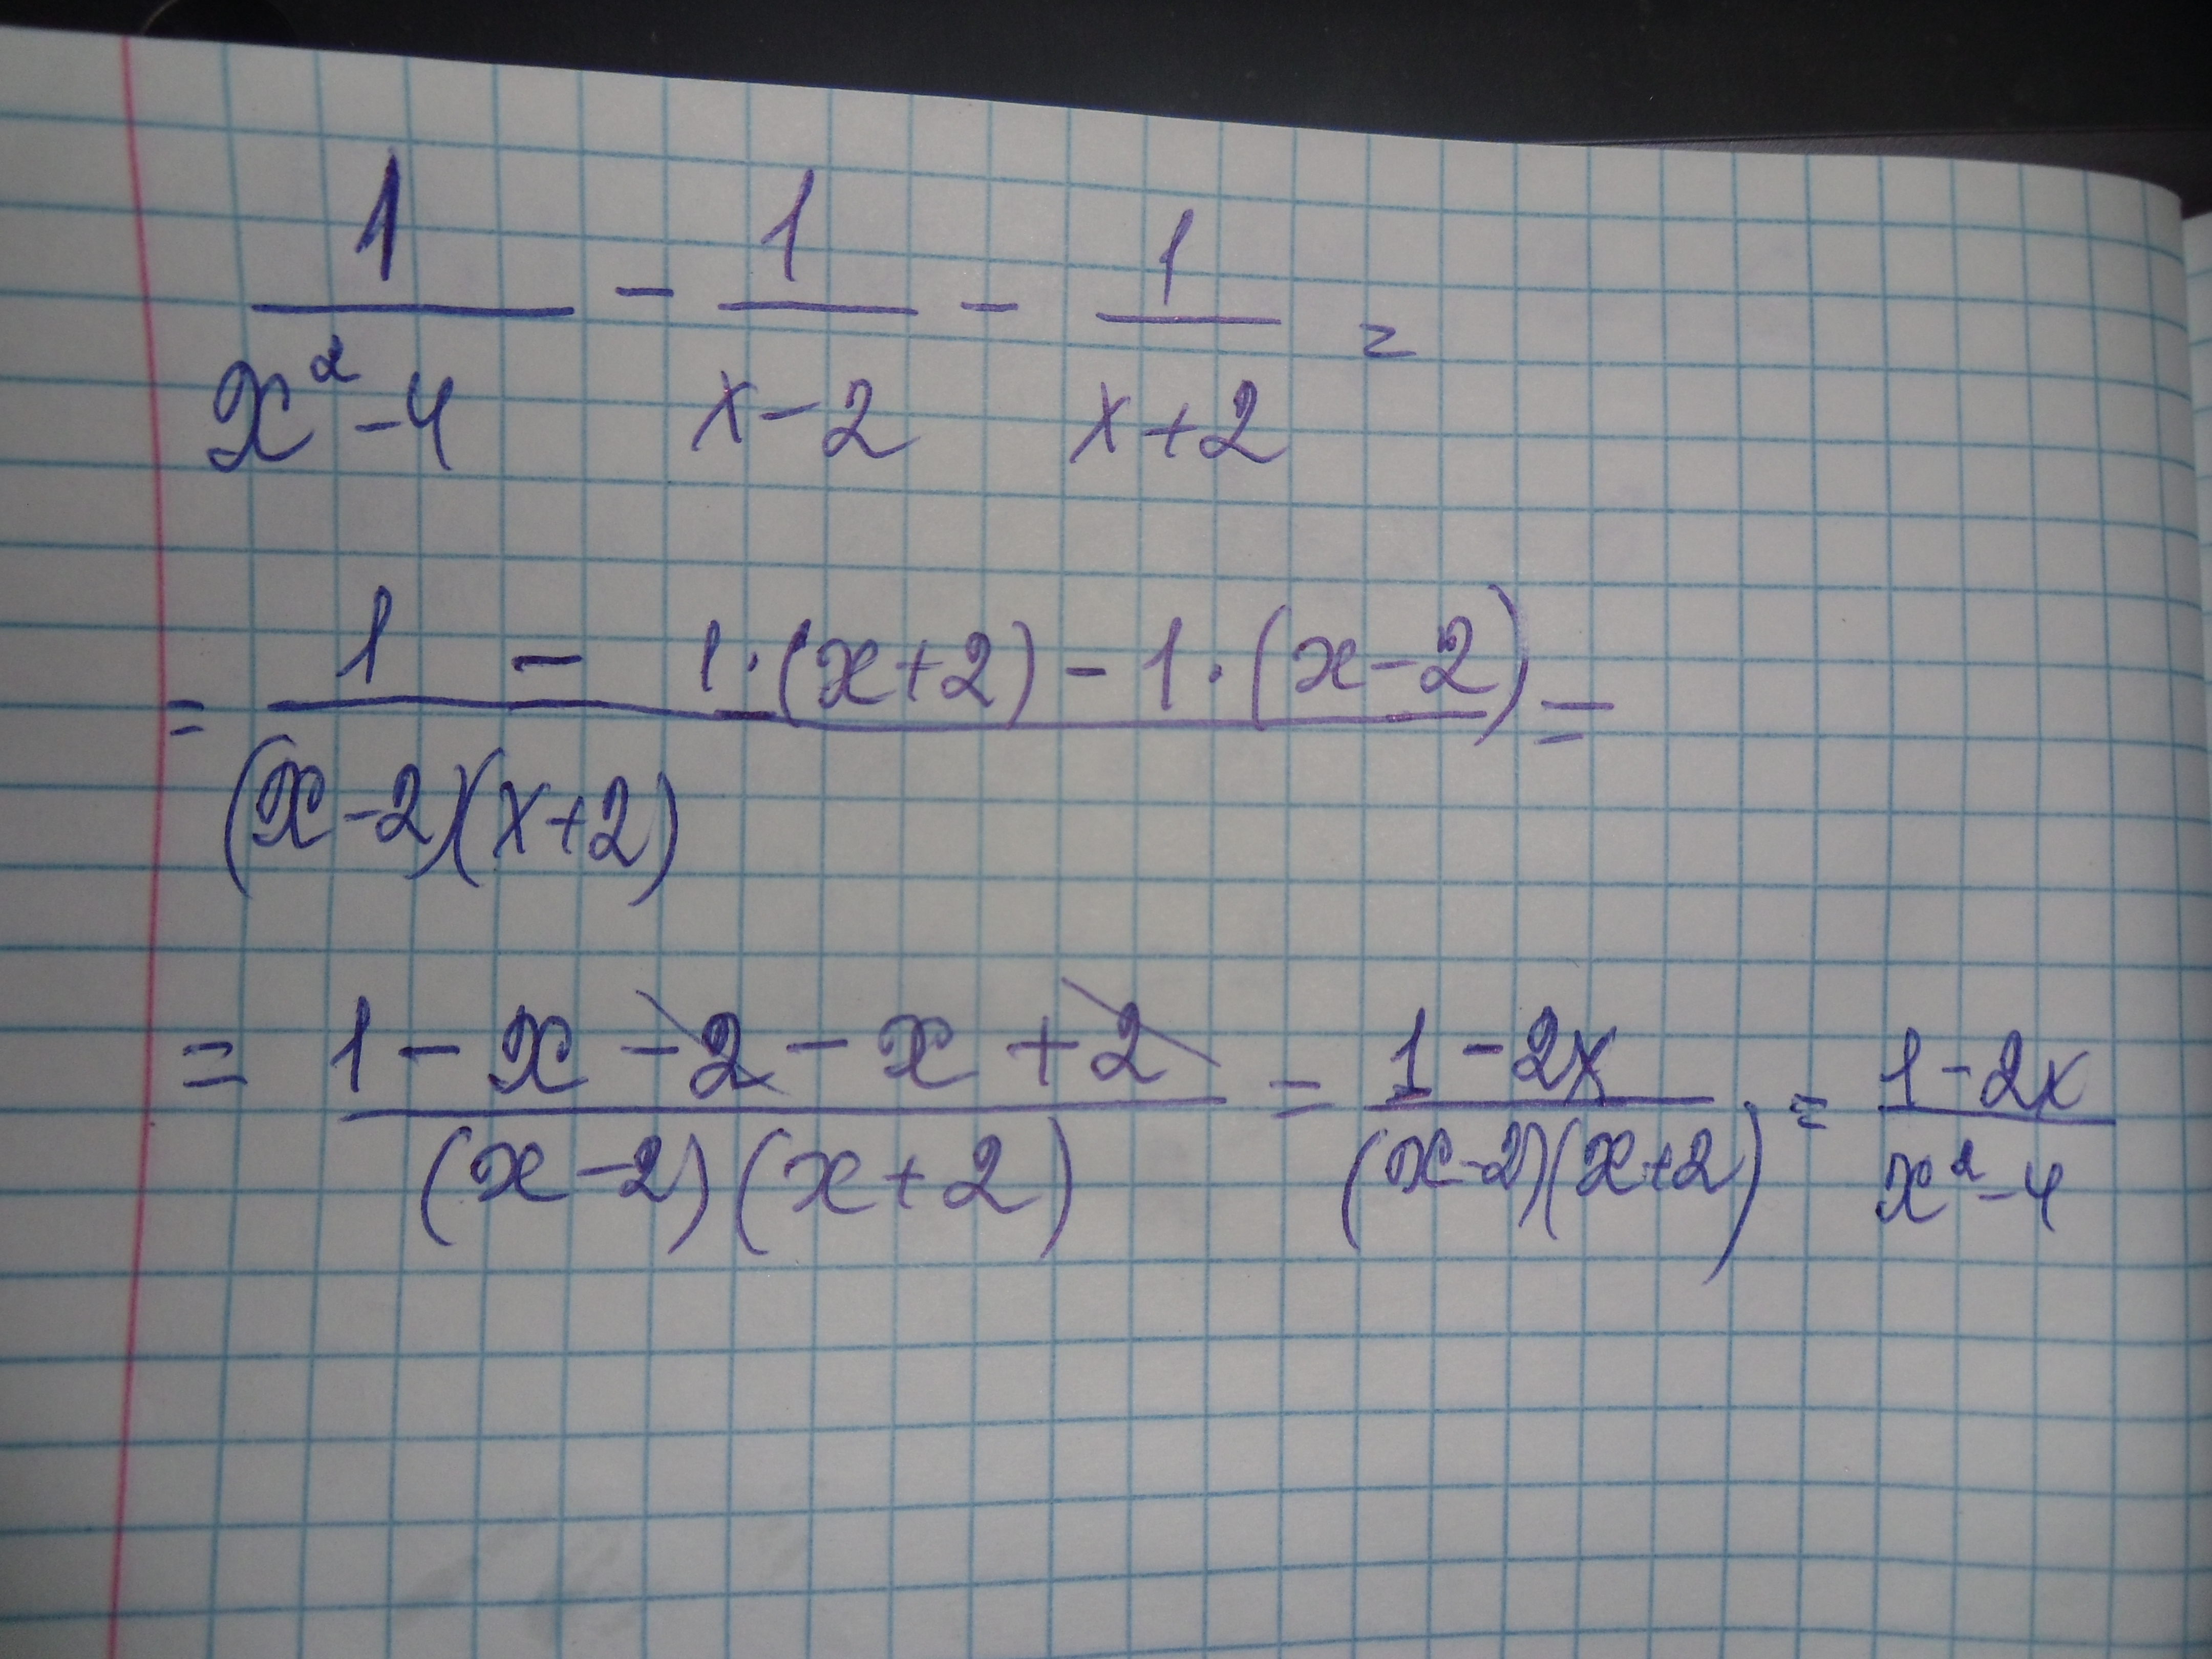 1/(x²-4) - 1/(x-2) - 1/(x+2) =
= (1 - 1·(x+2) - 1·(x-2))/((x-2)(x+2)) =
= (1 - x - 2 - x + 2)/((x-2)(x+2)) = (1-2x)/((x-2)(x+2)) = (1-2x)/(x²-4)